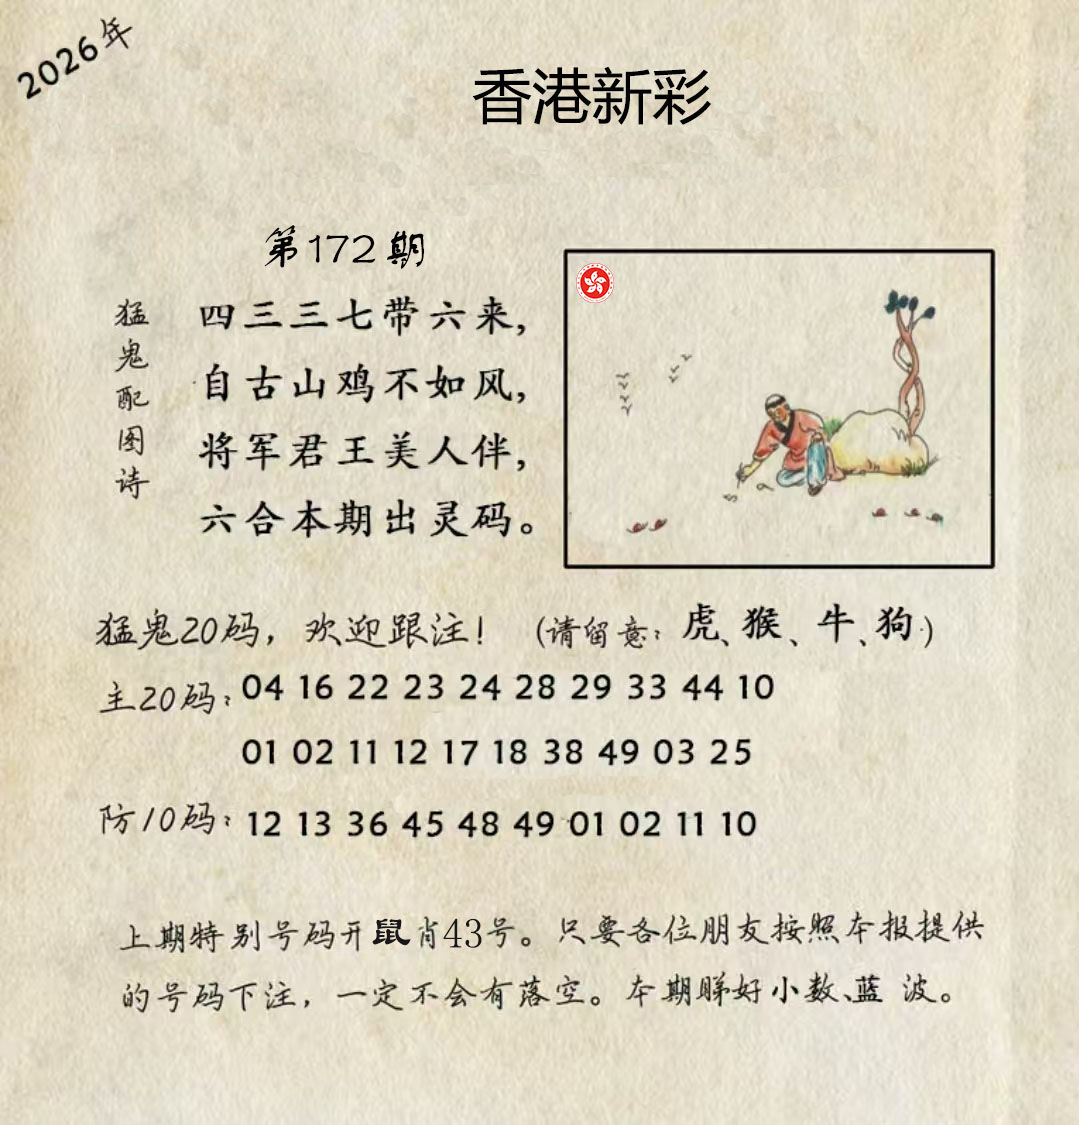 2026年
香港新彩
第172期
猛鬼配图诗
四三三七带六来,
自古山鸡不如风,
将军君王美人伴,
六合本期出灵码。
猛鬼20码,欢迎跟注! (请留意:虎、猴、牛、狗.)
主20码: 04 16 22 23 24 28 29 33 44 10
01 02 11 12 17 18 38 49 03 25
防10码: 12 13 36 45 48 49 01 02 11 10
上期特别号码开鼠肖43号。只要各位朋友按照本报提供
的号码下注,一定不会有落空。本期睇好小数、蓝 波。